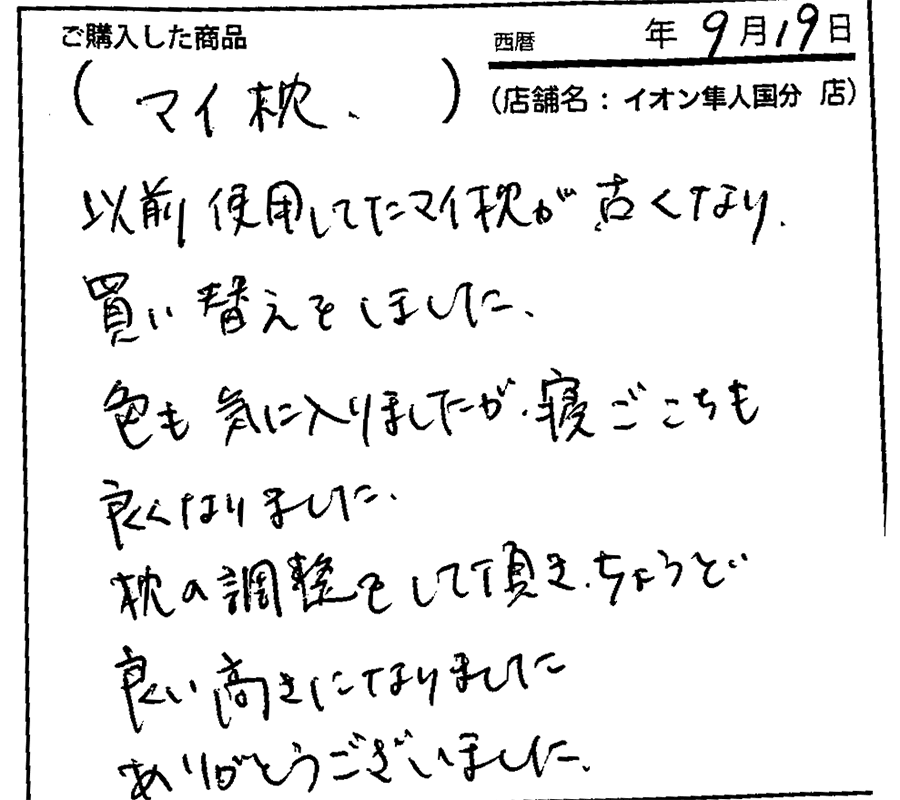 ご購入した商品
西暦 年 9月19日
(マイ枕、)
(店舗名：イオン隼人国分 店)
以前使用してたマイ枕が古くなり、
買い替えをしました、
色も気に入りましたが、寝ごこちも
良くなりました、
枕の調整をして頂き、ちょうど
良い高さになりました
ありがとうございました、